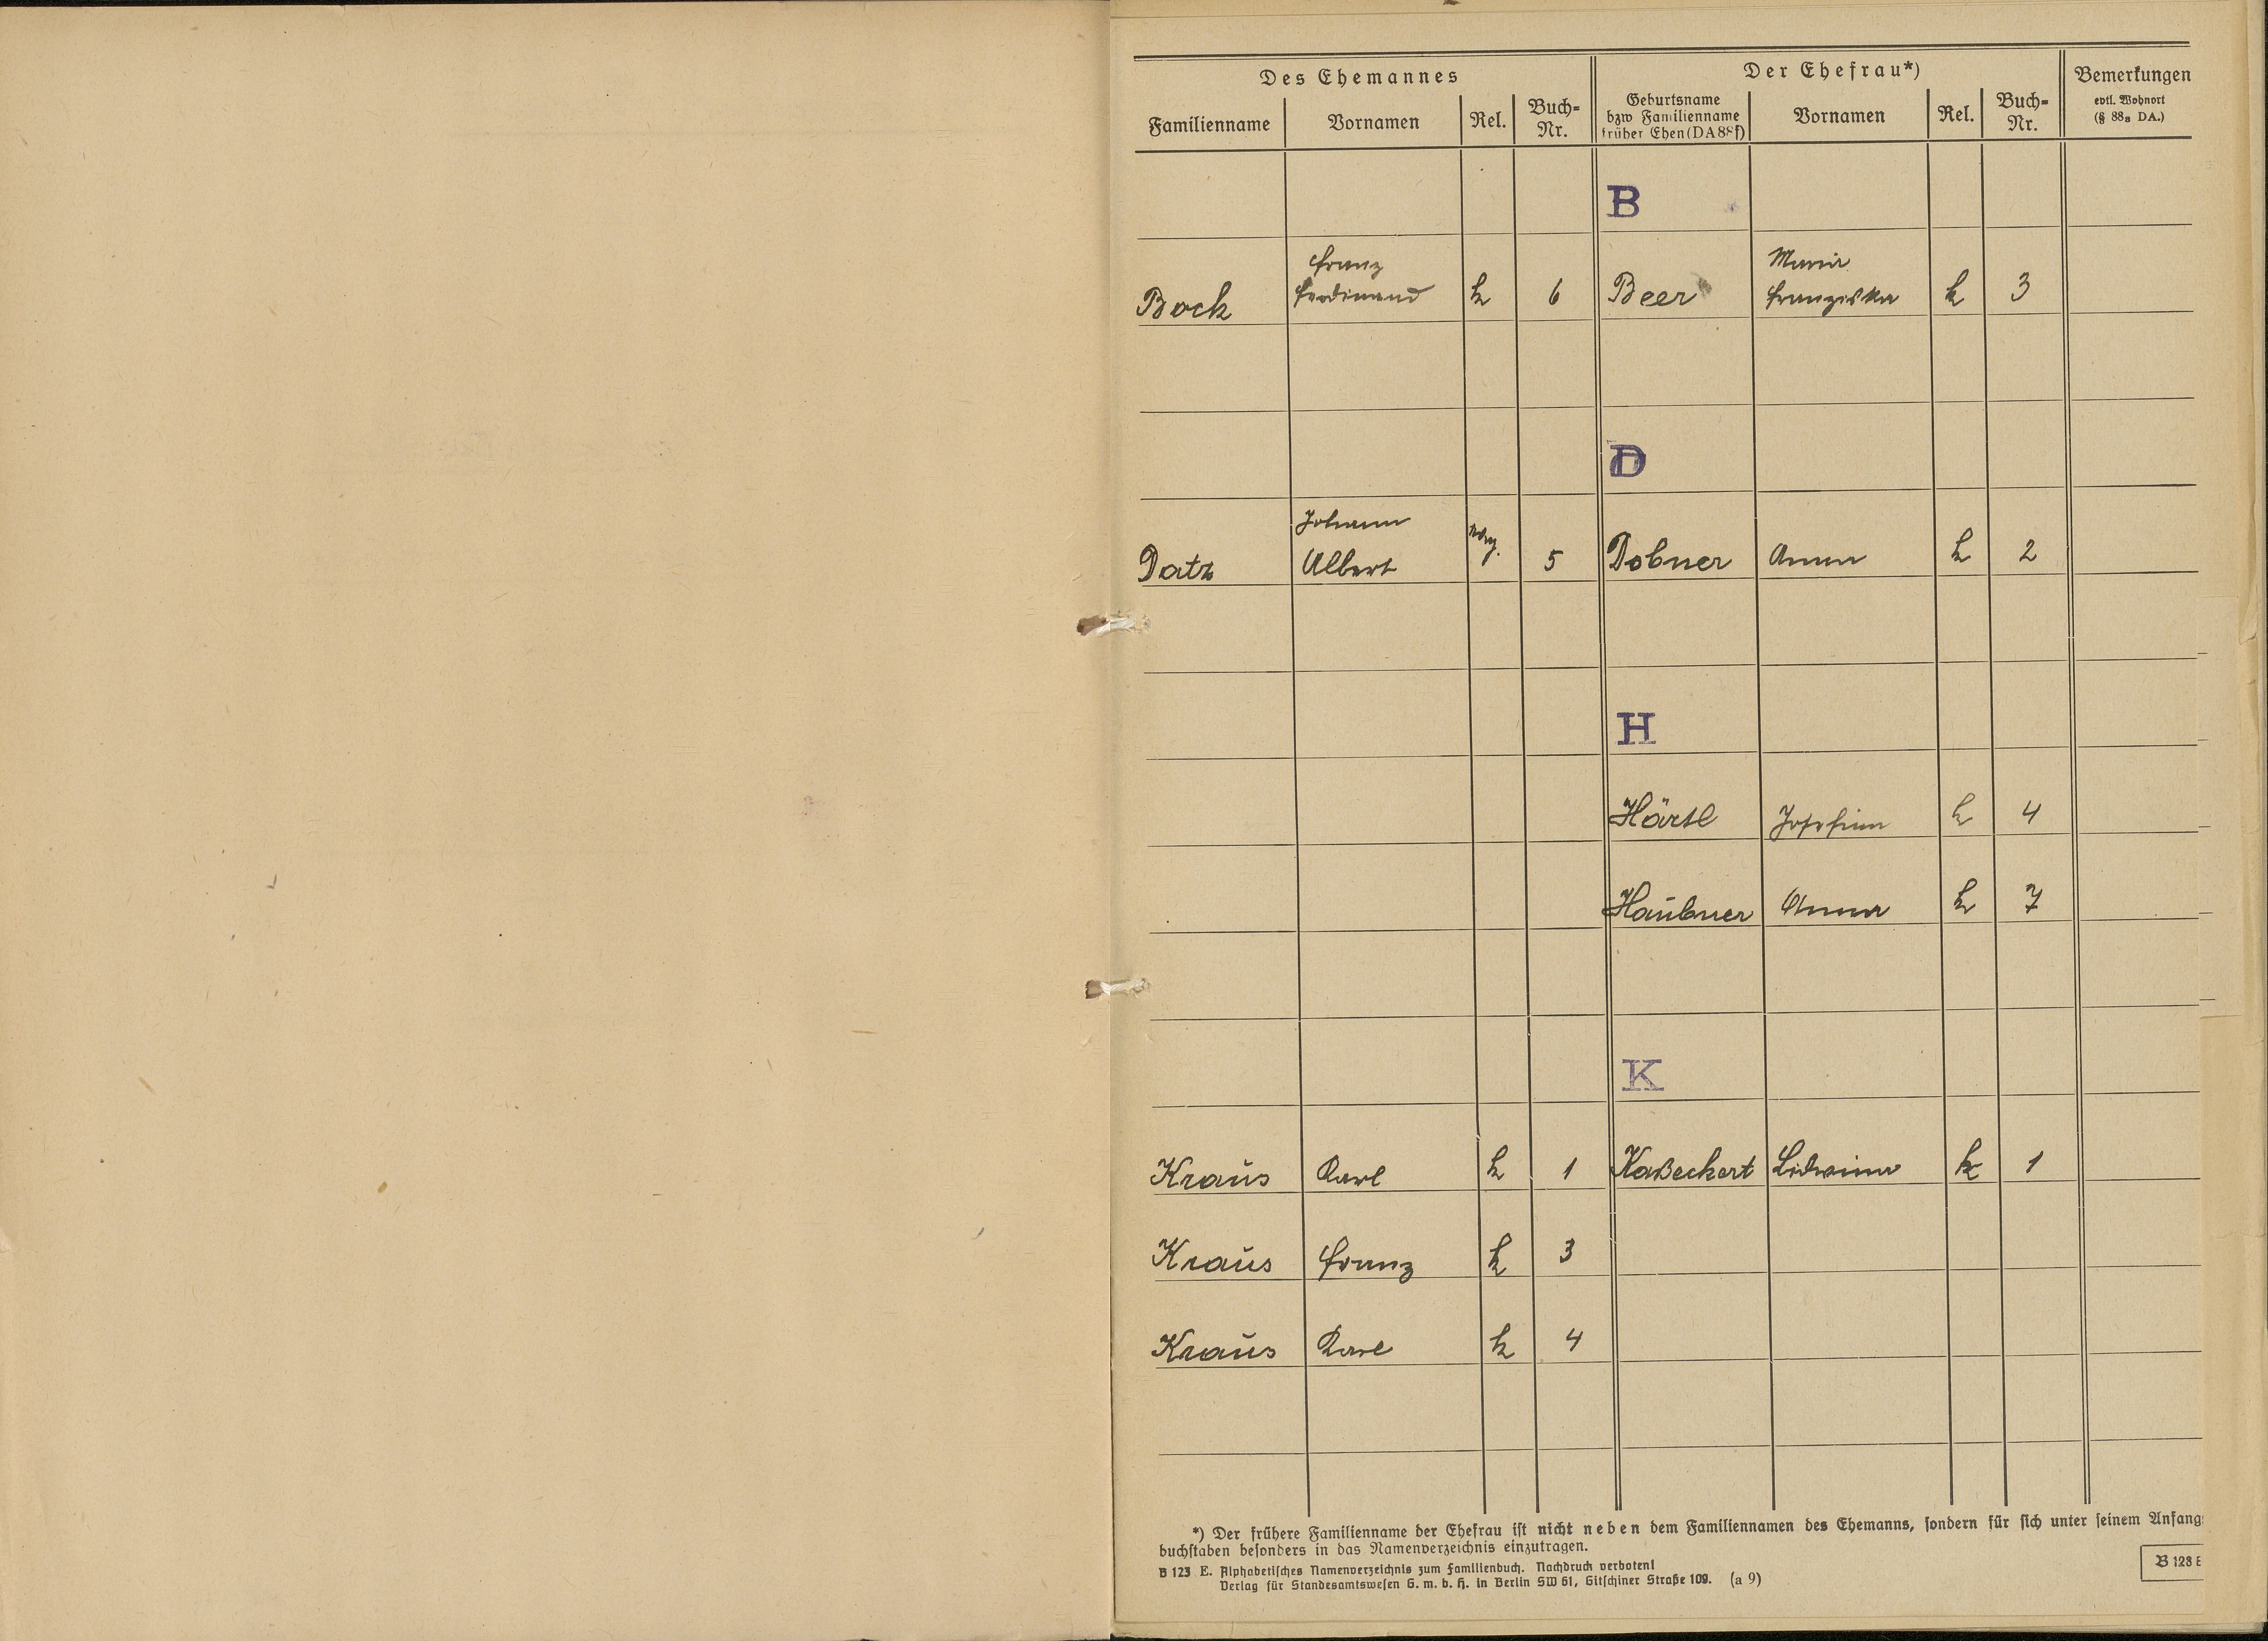 Des Ehemannes
Der Ehefrau*)
Bemerkungen
evtl. Wohnort
(§ 88a DA.)
Familienname
Vornamen
Rel.
Buch-
Nr.
Geburtsname
bzw Familienname
früher Ehen (DA 88f)
Vornamen
Rel.
Buch-
Nr.
B
Franz
Maria
Bock Ferdinand k 6 Beer Franziska k 3
D
Johann
Datz Albert 5 Dobner Anna k 2
H
Härtl Josefine k 4
Haubner Anna k 7
K
Kraus Karl k 1 Kaßeckert Lidwina k 1
Kraus Franz k 3
Kraus Karl k 4
*) Der frühere Familienname der Ehefrau ist nicht neben dem Familiennamen des Ehemanns, sondern für sich unter seinem Anfangs
buchstaben besonders in das Namenverzeichnis einzutragen.
B 123 E. Alphabetisches Namenverzeichnis zum Familienbuch. Nachdruck verboten!
Verlag für Standesamtswesen G. m. b. H. in Berlin SW 61, Gitschiner Straße 109. (a 9)
B 123 E